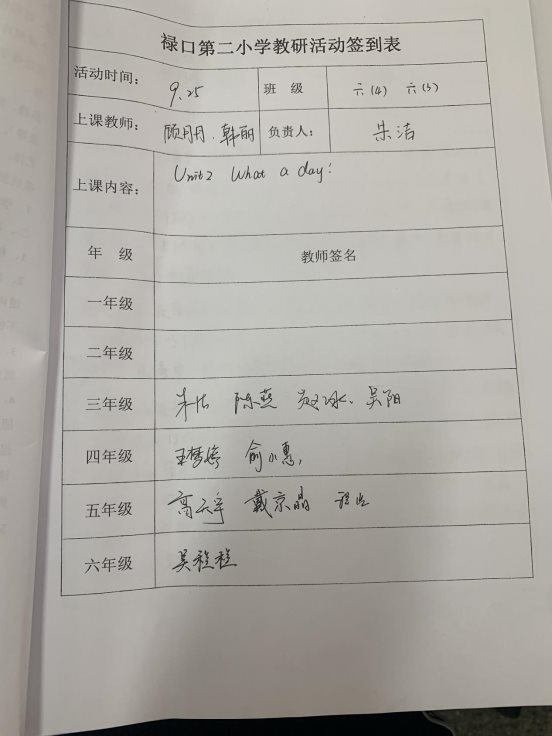 禄口第二小学教研活动签到表
活动时间： 9.25 班 级 六(4) 六(3)
上课教师： 顾月月、韩丽 负责人： 朱洁
上课内容： Unit2 What a day!
年 级 教师签名
一年级
二年级
三年级 朱洁 陈燕 吴阳
四年级 王梦婷 俞小惠
五年级 高云宇 戴京晶
六年级 吴程程